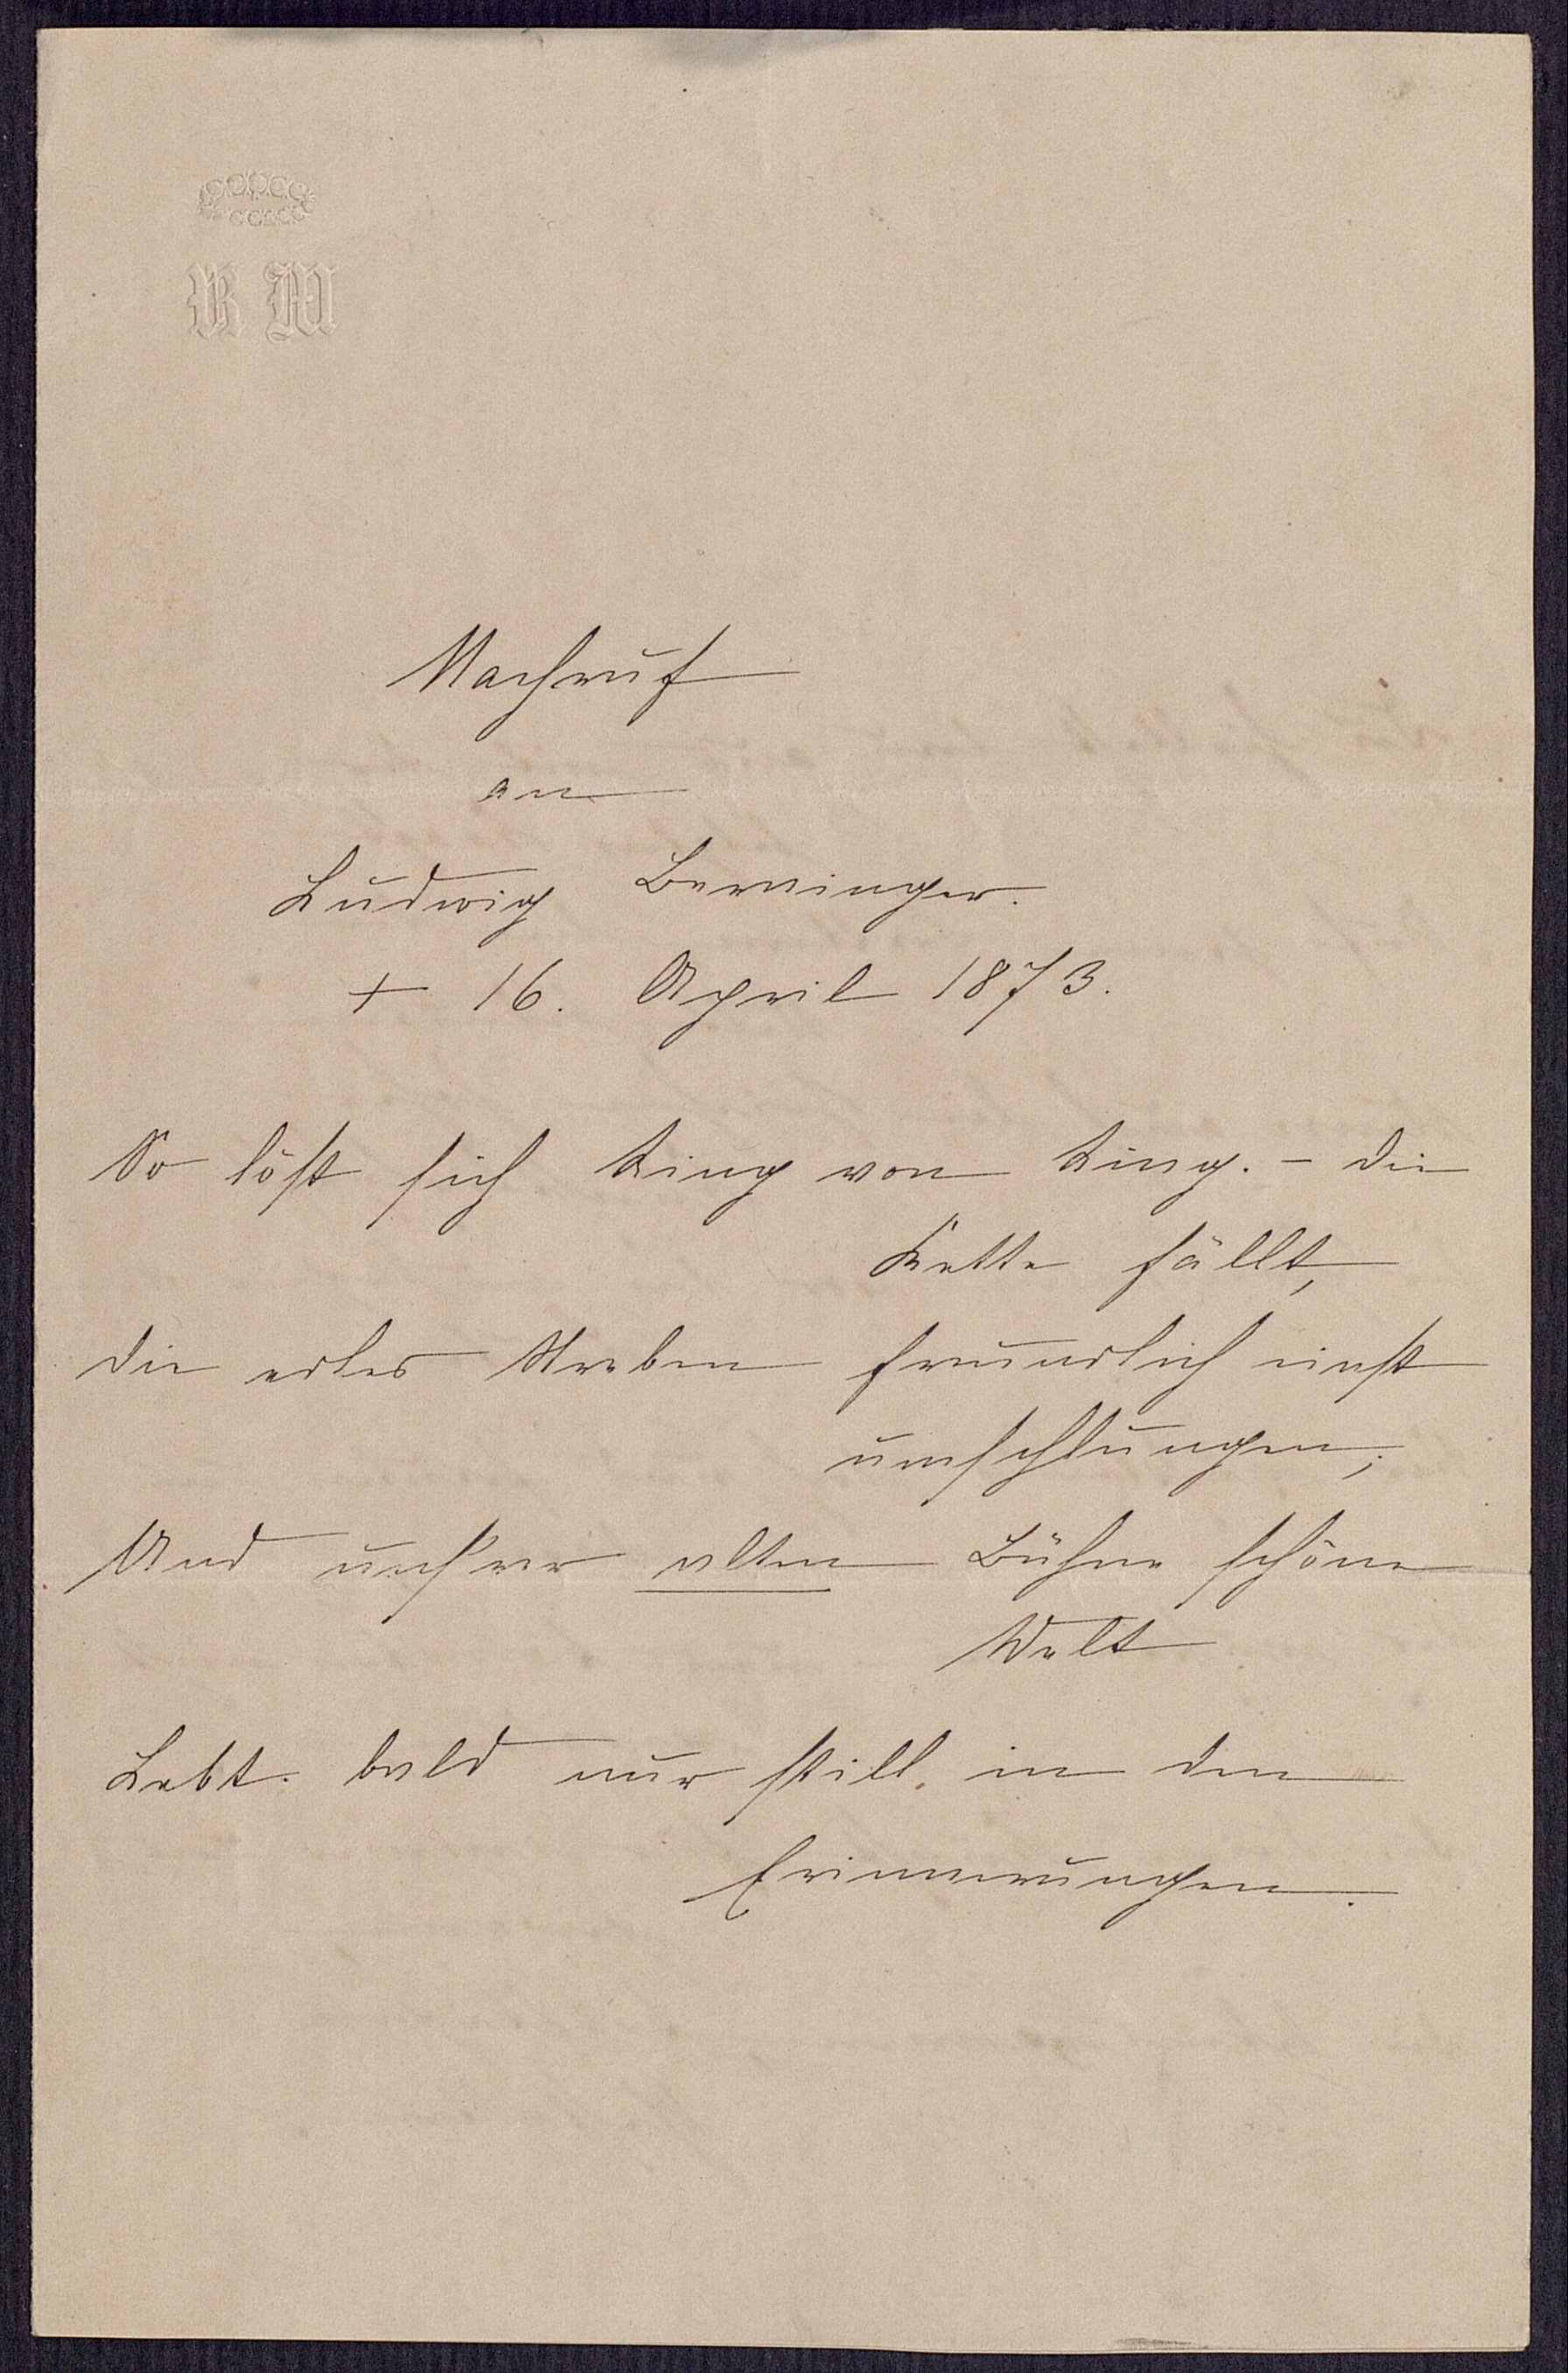 Nachruf
an
Ludwig Berninger.
+ 16. April 1873.
So löst sich Ring von Ring. – die
Kette fällt,
die edles Streben freundlich einst
umschlungen;
Und uns'rer alten Bühne schöne
Welt
Lebt bald nur still in den
Erinnerungen.